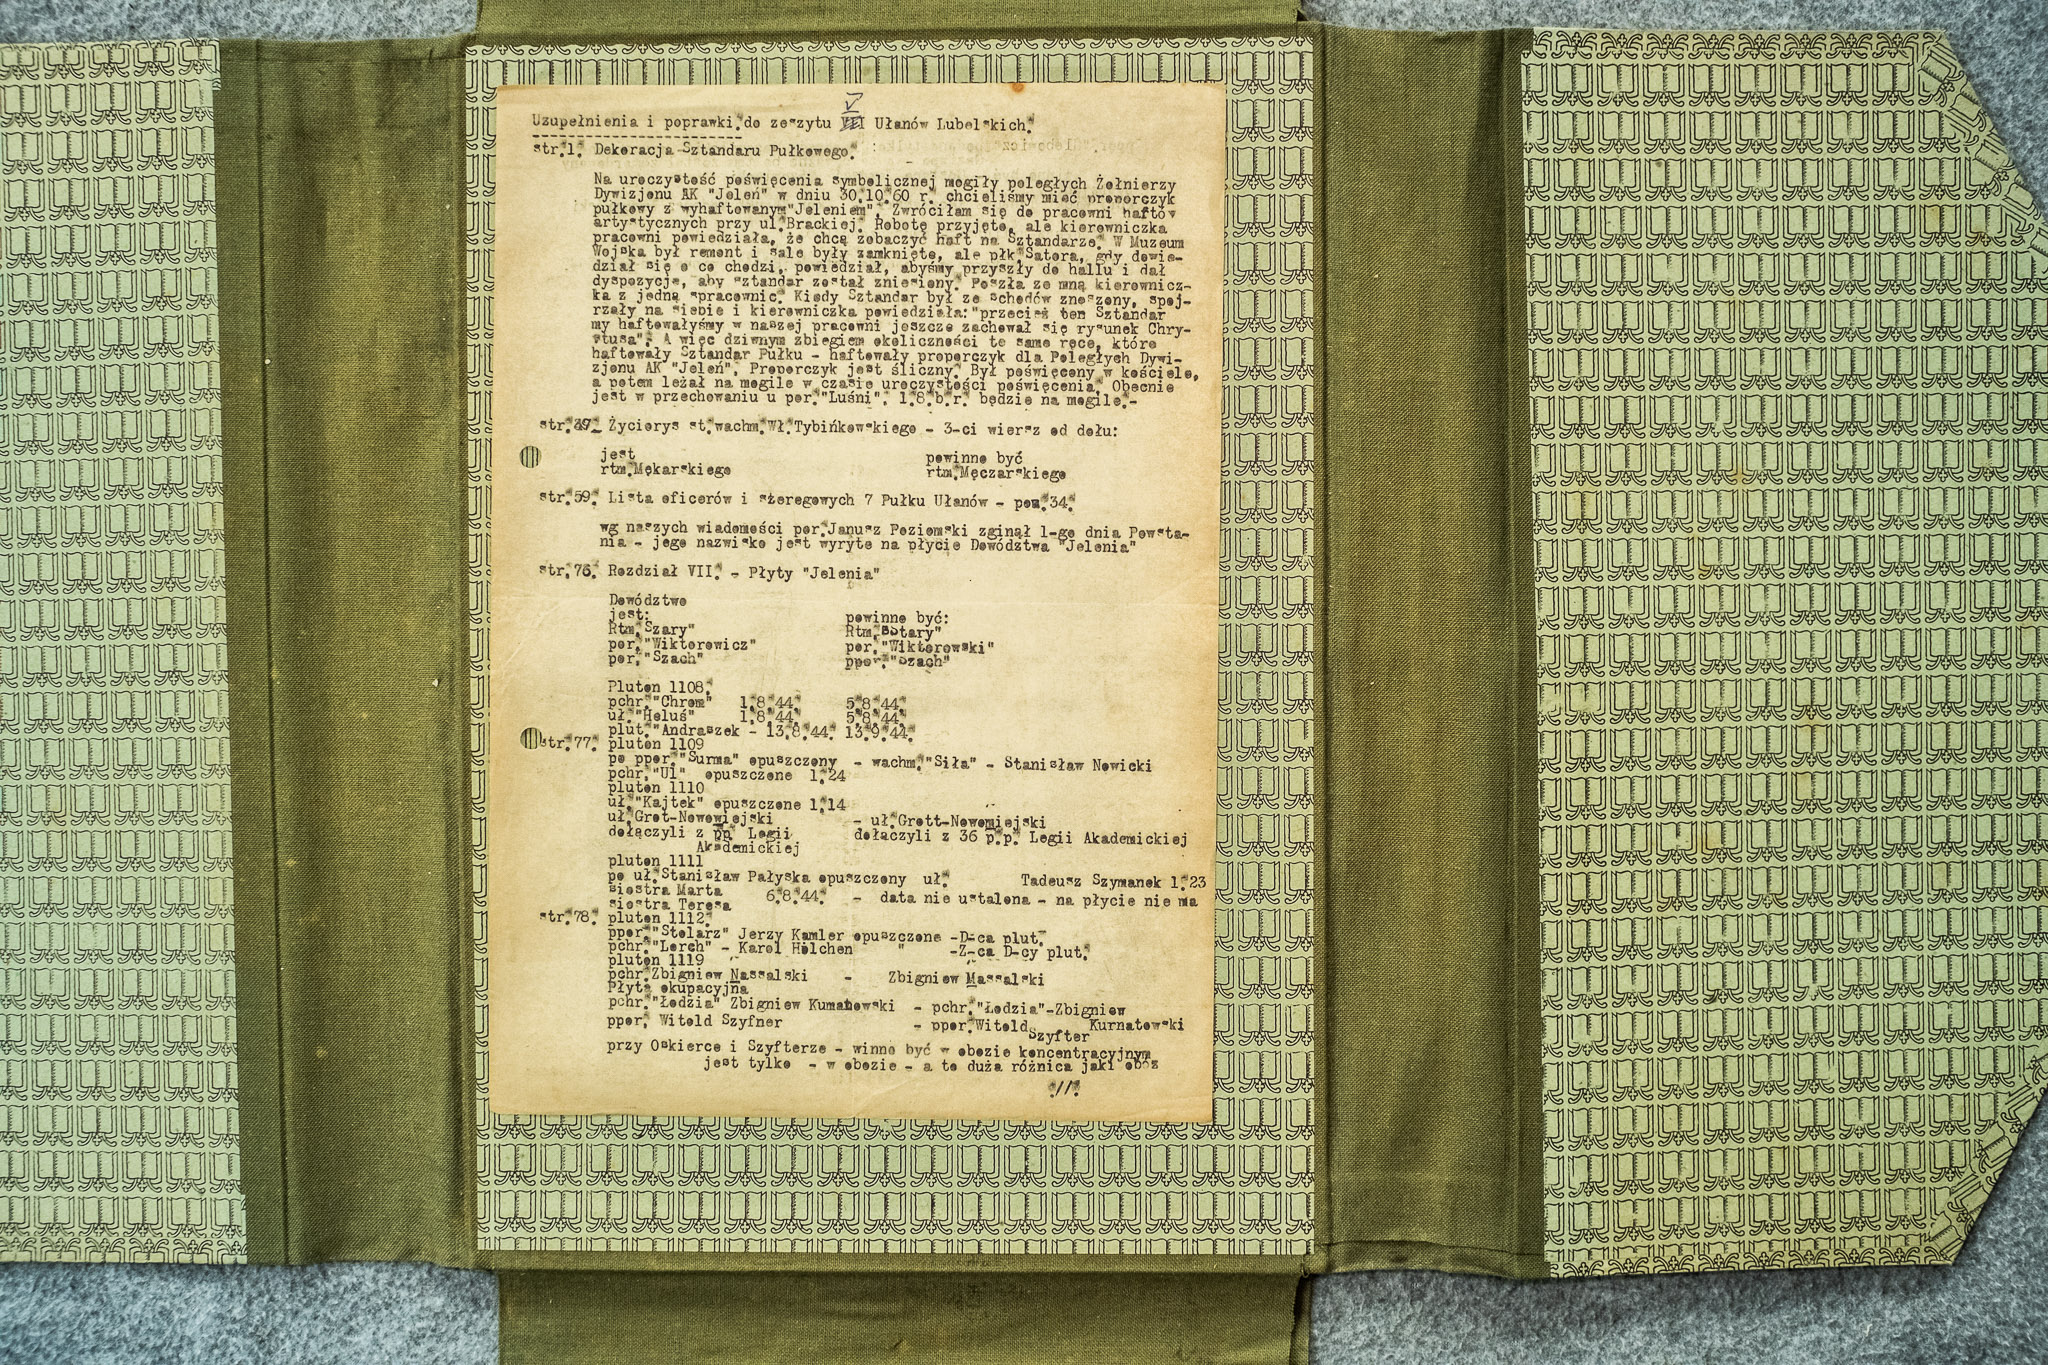 V
Uzupełnienia i poprawki.do zeszytu Ułanów Lubelskich.
str.1. Dekoracja Sztandaru Pułkowego.
Na uroczystość poświęcenia symbolicznej mogiły poległych Żołnierzy
Dywizjonu AK "Jeleń" w dniu 30.10.60 r. chcieliśmy mieć proporczyk
pułkowy z wyhaftowanym"Jeleniem". Zwróciłam się do pracowni haftów
artystycznych przy ul.Brackiej. Robotę przyjęto, ale kierowniczka
pracowni powiedziała, że chcą zobaczyć haft na Sztandarze. W Muzeum
Wojska był remont i sale były zamknięte, ale płk.Satora, gdy dowie-
dział się o co chodzi, powiedział, abyśmy przyszły do hallu i dał
dyspozycję, aby sztandar został zniesiony. Poszła ze mną kierownicz-
ka z jedną spracownic. Kiedy Sztandar był ze schodów znoszony, spoj-
rzały na siebie i kierowniczka powiedziała:"przecież ten Sztandar
my haftowałyśmy w naszej pracowni jeszcze zachował się rysunek Chry-
stusa". A więc dziwnym zbiegiem okoliczności te same ręce, które
haftowały Sztandar Pułku - haftowały proporczyk dla Poległych Dywi-
zjonu AK "Jeleń". Proporczyk jest śliczny. Był poświęcony w kościele,
a potem leżał na mogile w czasie uroczystości poświęcenia. Obecnie
jest w przechowaniu u por."Luśni". 1.8.b.r. będzie na mogile.-
str.39. Życiorys st.wachm.Wł.Tybińkowskiego - 3-ci wiersz od dołu:
jest powinno być
rtm.Mękarskiego rtm.Męczarskiego
str.59. Lista oficerów i szeregowych 7 Pułku Ułanów - poz.34.
wg naszych wiadomości por.Janusz Poziomski zginął 1-go dnia Powsta-
nia - jego nazwisko jest wyryte na płycie Dowództwa "Jelenia"
str.76. Rozdział VII. - Płyty "Jelenia"
Dowództwo
jest: powinno być:
Rtm."Szary" Rtm."Stary"
por."Wiktorowicz" por."Wiktorowski"
por."Szach" ppor."Szach"
Pluton 1108.
pchr."Chrom" 1.8.44. 5.8.44.
uł."Heluś" 1.8.44. 5.8.44.
plut."Andraszek - 13.8.44. 13.9.44.
str.77. pluton 1109
po ppor."Surma" opuszczony - wachm."Siła" - Stanisław Nowicki
pchr."Ul" opuszczone 1.24
pluton 1110
uł."Kajtek" opuszczone 1.14
uł.Grot-Nowowiejski - uł.Grott-Nowomiejski
dołączyli z pp. Legii dołączyli z 36 p.p. Legii Akademickiej
Akademickiej
pluton 1111
po uł.Stanisław Pałyska opuszczony uł. Tadeusz Szymanek 1.23
siostra Marta
siostra Teresa 6.8.44. - data nie ustalona - na płycie nie ma
str.78. pluton 1112.
ppor."Stolarz" Jerzy Kamler opuszczone -D-ca plut.
pchr."Lorch" - Karol Hilchen " -Z-ca D-cy plut.
pluton 1119
pchr.Zbigniew Nassalski - Zbigniew Massalski
Płyta okupacyjna
pchr."Łodzia" Zbigniew Kumanowski - pchr."Łodzia"-Zbigniew
Kurnatowski
ppor. Witold Szyfner - ppor.Witold Szyfter
przy Oskierce i Szyfterze - winno być w obozie koncentracyjnym
jest tylko - w obozie - a to duża różnica jaki obóz
.//.